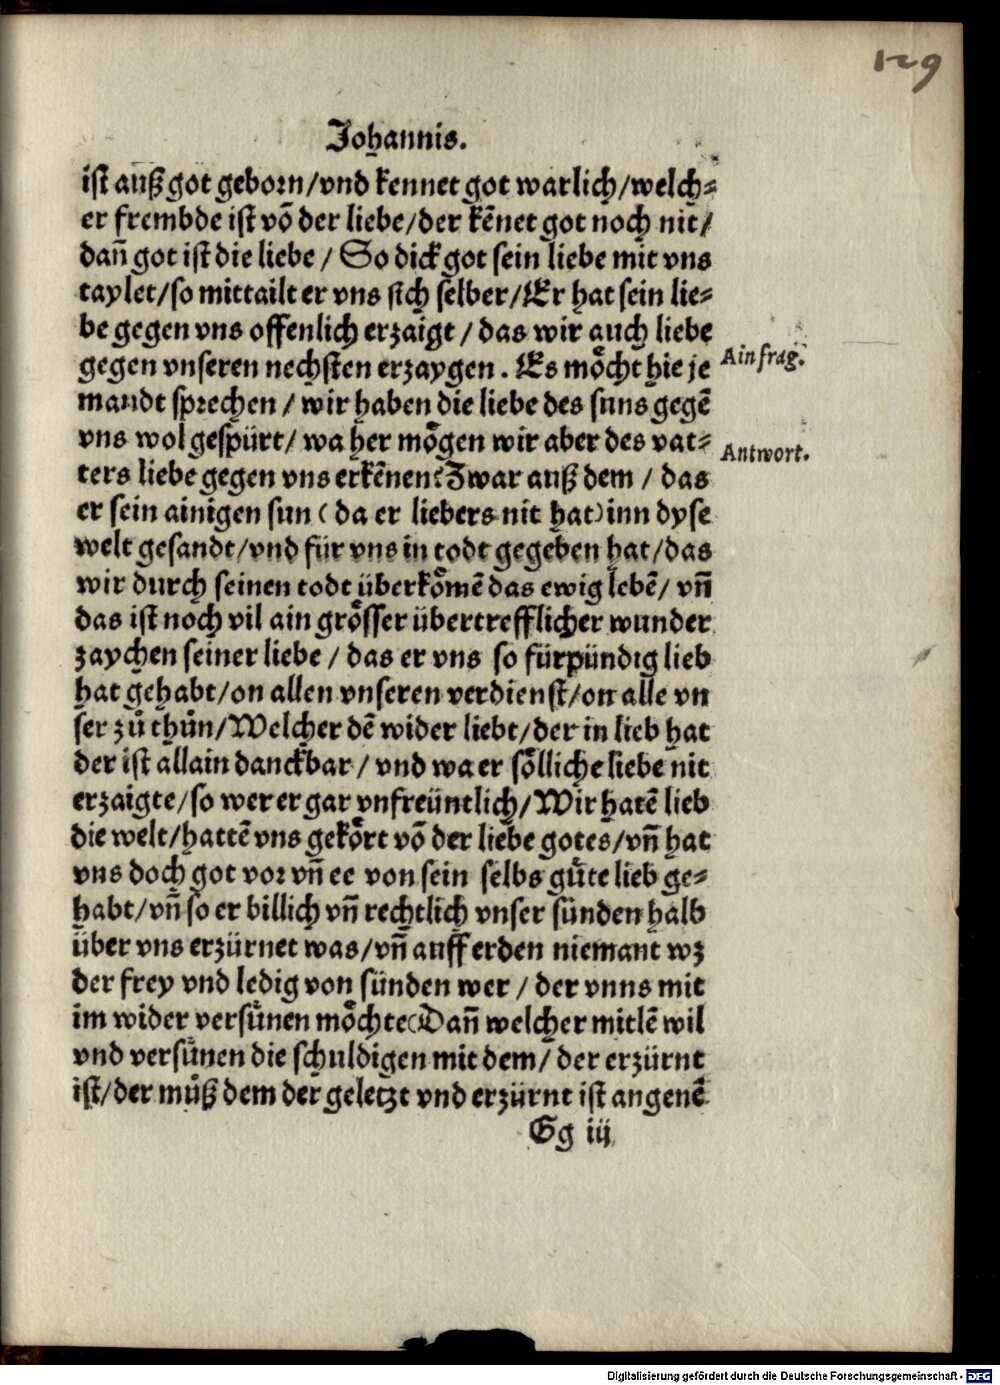 129
Johannis.
ist auß got geborn/vnd kennet got warlich/welch⸗
er frembde ist võ der liebe/der kẽnet got noch nit/
dañ got ist die liebe / So dick got sein liebe mit vns
taylet/so mittailt er vns sich selber/Er hat sein lie⸗
be gegen vns offenlich erzaigt / das wir auch liebe
gegen vnseren nechsten erzaygen . Es moͤcht hie je
Ain frag.
mandt sprechen / wir haben die liebe des suns gegẽ
vns wol gespürt/ wa her moͤgen wir aber des vat⸗
Antwort.
ters liebe gegen vns erkẽnen? Zwar auß dem / das
er sein ainigen sun ( da er liebers nit hat) inn dyse
welt gesandt/vnd für vns in todt gegeben hat/das
wir durch seinen todt überkoͤmẽ das ewig lebẽ/ vñ
das ist noch vil ain groͤsser übertrefflicher wunder
zaychen seiner liebe / das er vns so fürpündig lieb
hat gehabt/on allen vnseren verdienst/on alle vn
ser zů thůn/Welcher dẽ wider liebt/der in lieb hat
der ist allain danckbar/ vnd wa er soͤlliche liebe nit
erzaigte/so wer er gar vnfreüntlich/Wir hatẽ lieb
die welt/hattẽ vns gekoͤrt võ der liebe gotes/vñ hat
vns doch got vor vñ ee von sein selbs guͤte lieb ge⸗
habt/vñ so er billich vñ rechtlich vnser sünden halb
über vns erzürnet was/vñ auff erden niemant wz
der frey vnd ledig von sünden wer / der vnns mit
im wider versuͤnen moͤchte(Dañ welcher mitlẽ wil
vnd versuͤnen die schuldigen mit dem/ der erzürnt
ist/der můß dem der geletzt vnd erzürnt ist angenẽ
Gg iij
Digitalisierung gefördert durch die Deutsche Forschungsgemeinschaft - DFG